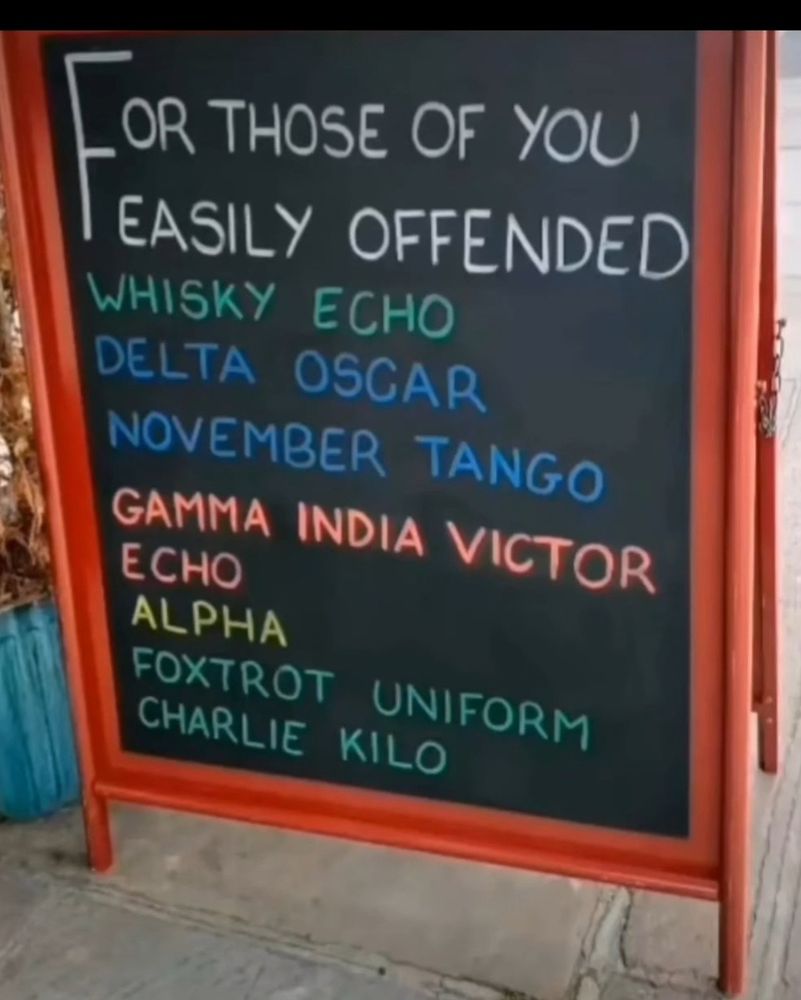 FOR THOSE OF YOU
EASILY OFFENDED
WHISKY ECHO
DELTA OSCAR
NOVEMBER TANGO
GAMMA INDIA VICTOR
ECHO
ALPHA
FOXTROT UNIFORM
CHARLIE KILO